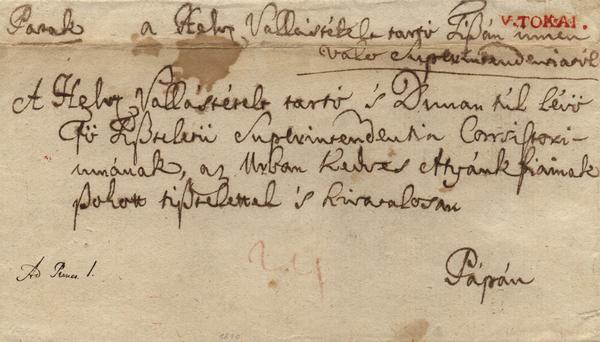 Patak a Helv. Vallástételt tartó Tiszán innen V. TOKAI.
való Superintendentiaról
A Helv. Vallástételt tartó 's Dunán túl lévő
Fő Tiszteletű Superintendentia Consistori-
umának, az Urban kedves Atyánkfiainak
szokott tisztelettel 's hivatalosan
Pápán